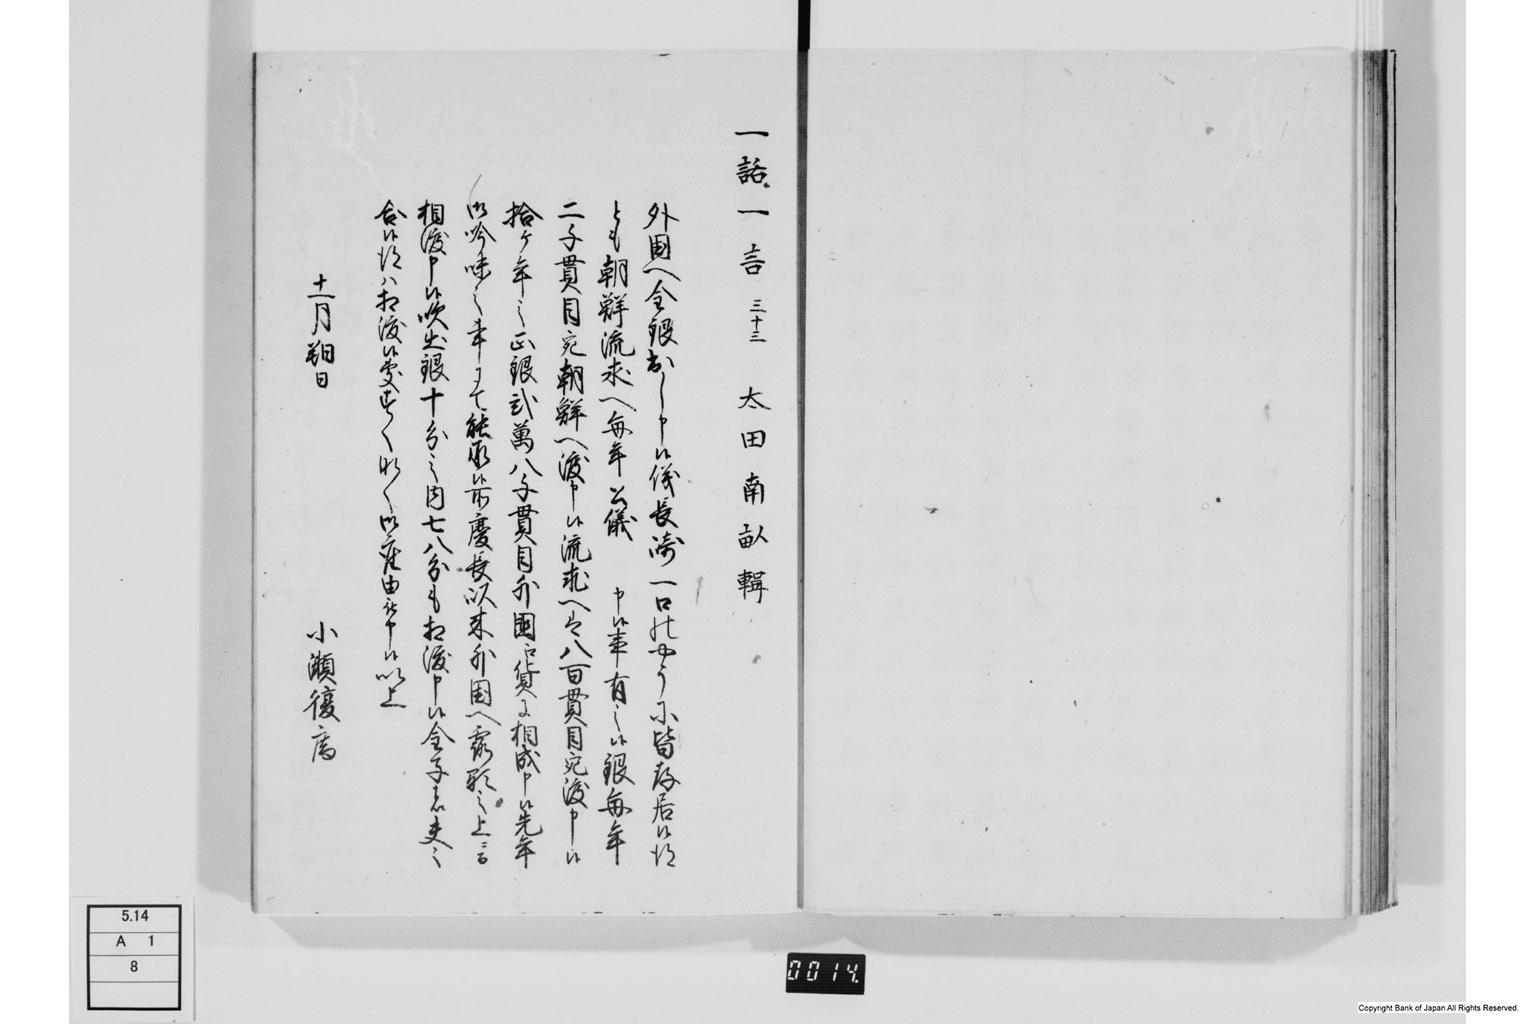 一話一言 三十三 太田南畝輯
外国へ金銀出し申候儀長崎一口のやうに皆存居候得
とも朝鮮流求へ毎年公儀 申候事有之候銀毎年
二千貫目宛朝鮮へ渡申候流求へは八百貫目宛渡申候
拾ケ年之正銀弐萬八千貫目外国江貨に相成申候先年
御吟味之事にて能取候前慶長以来外国へ 之上
相渡申候吹出銀十分之内七八分も相渡申候金子も夫々
合候得ハ相渡候 御座由 申候以上
十一月朔日
小瀬復庵
5.14
A 1
8
0014
Copyright Bank of Japan All Rights Reserved.